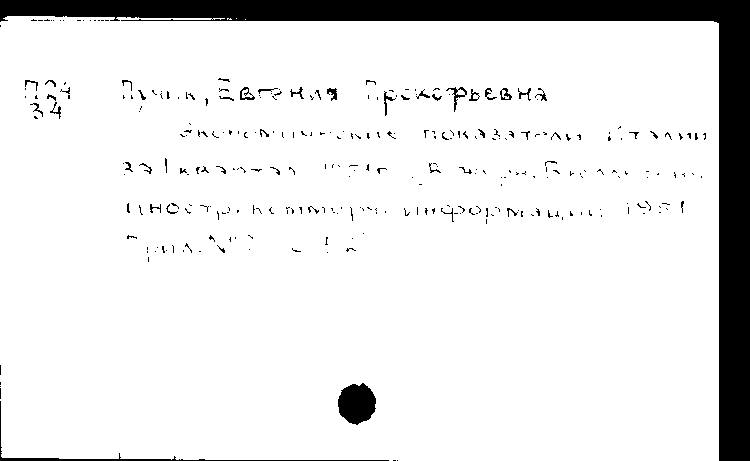 П24 Пучик, Евгения Прокофьевна
34
Экономические показатели Италии
за I квартал 1951г. В журн. Бюллетень
иностр. коммерч. информации 1951
Прил. №